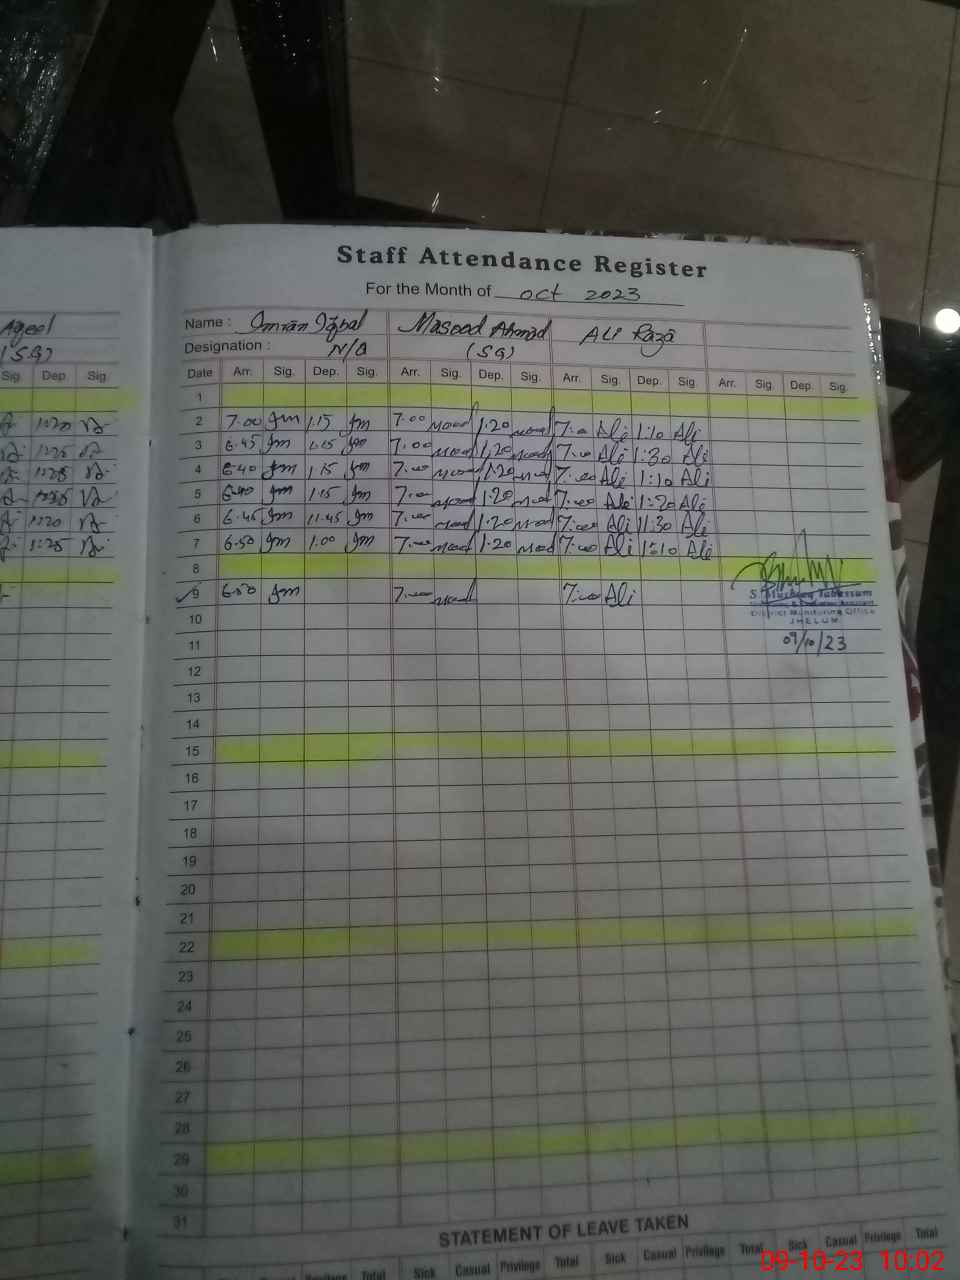 Staff Attendance Register
For the Month of oct 2023
Aqeel
(SG)
Sig. Dep. Sig.
1:20
1:25
1:25
1:20
1:25
Name : Imran Iqbal Masood Ahmad ALI Raza
Designation : N/Q (SG)
Date Arr. Sig. Dep. Sig. Arr. Sig. Dep. Sig. Arr. Sig. Dep. Sig. Arr. Sig. Dep. Sig.
1
2 7.00 Jm 1.15 Jm 7.00 Mood 1.20 Mood 7:00 Ali 1:10 Ali
3 6.45 Jm 1.15 Jm 7.00 Mood 1.20 Mood 7:00 Ali 1:30 Ali
4 6.40 Jm 1.15 Jm 7.00 Mood 1.20 Mood 7:00 Ali 1:10 Ali
5 6.40 Jm 1.15 Jm 7.00 Mood 1.20 Mood 7:00 Ali 1:20 Ali
6 6.45 Jm 11.45 Jm 7.00 Mood 1.20 Mood 7:00 Ali 1:30 Ali
7 6.50 Jm 1.00 Jm 7.00 Mood 1.20 Mood 7:00 Ali 1:10 Ali
8
9 6.50 Jm 7.00 Mood 7:00 Ali
S. Mushtaq Tabassum
District Monitoring Office
JHELUM
10
09/10/23
11
12
13
14
15
16
17
18
19
20
21
22
23
24
25
26
27
28
29
30
31
STATEMENT OF LEAVE TAKEN
Casual Privilege Total Sick Casual Privilege Total Sick Casual Privilege Total Sick Casual Privilege Total
09-10-23 10:02